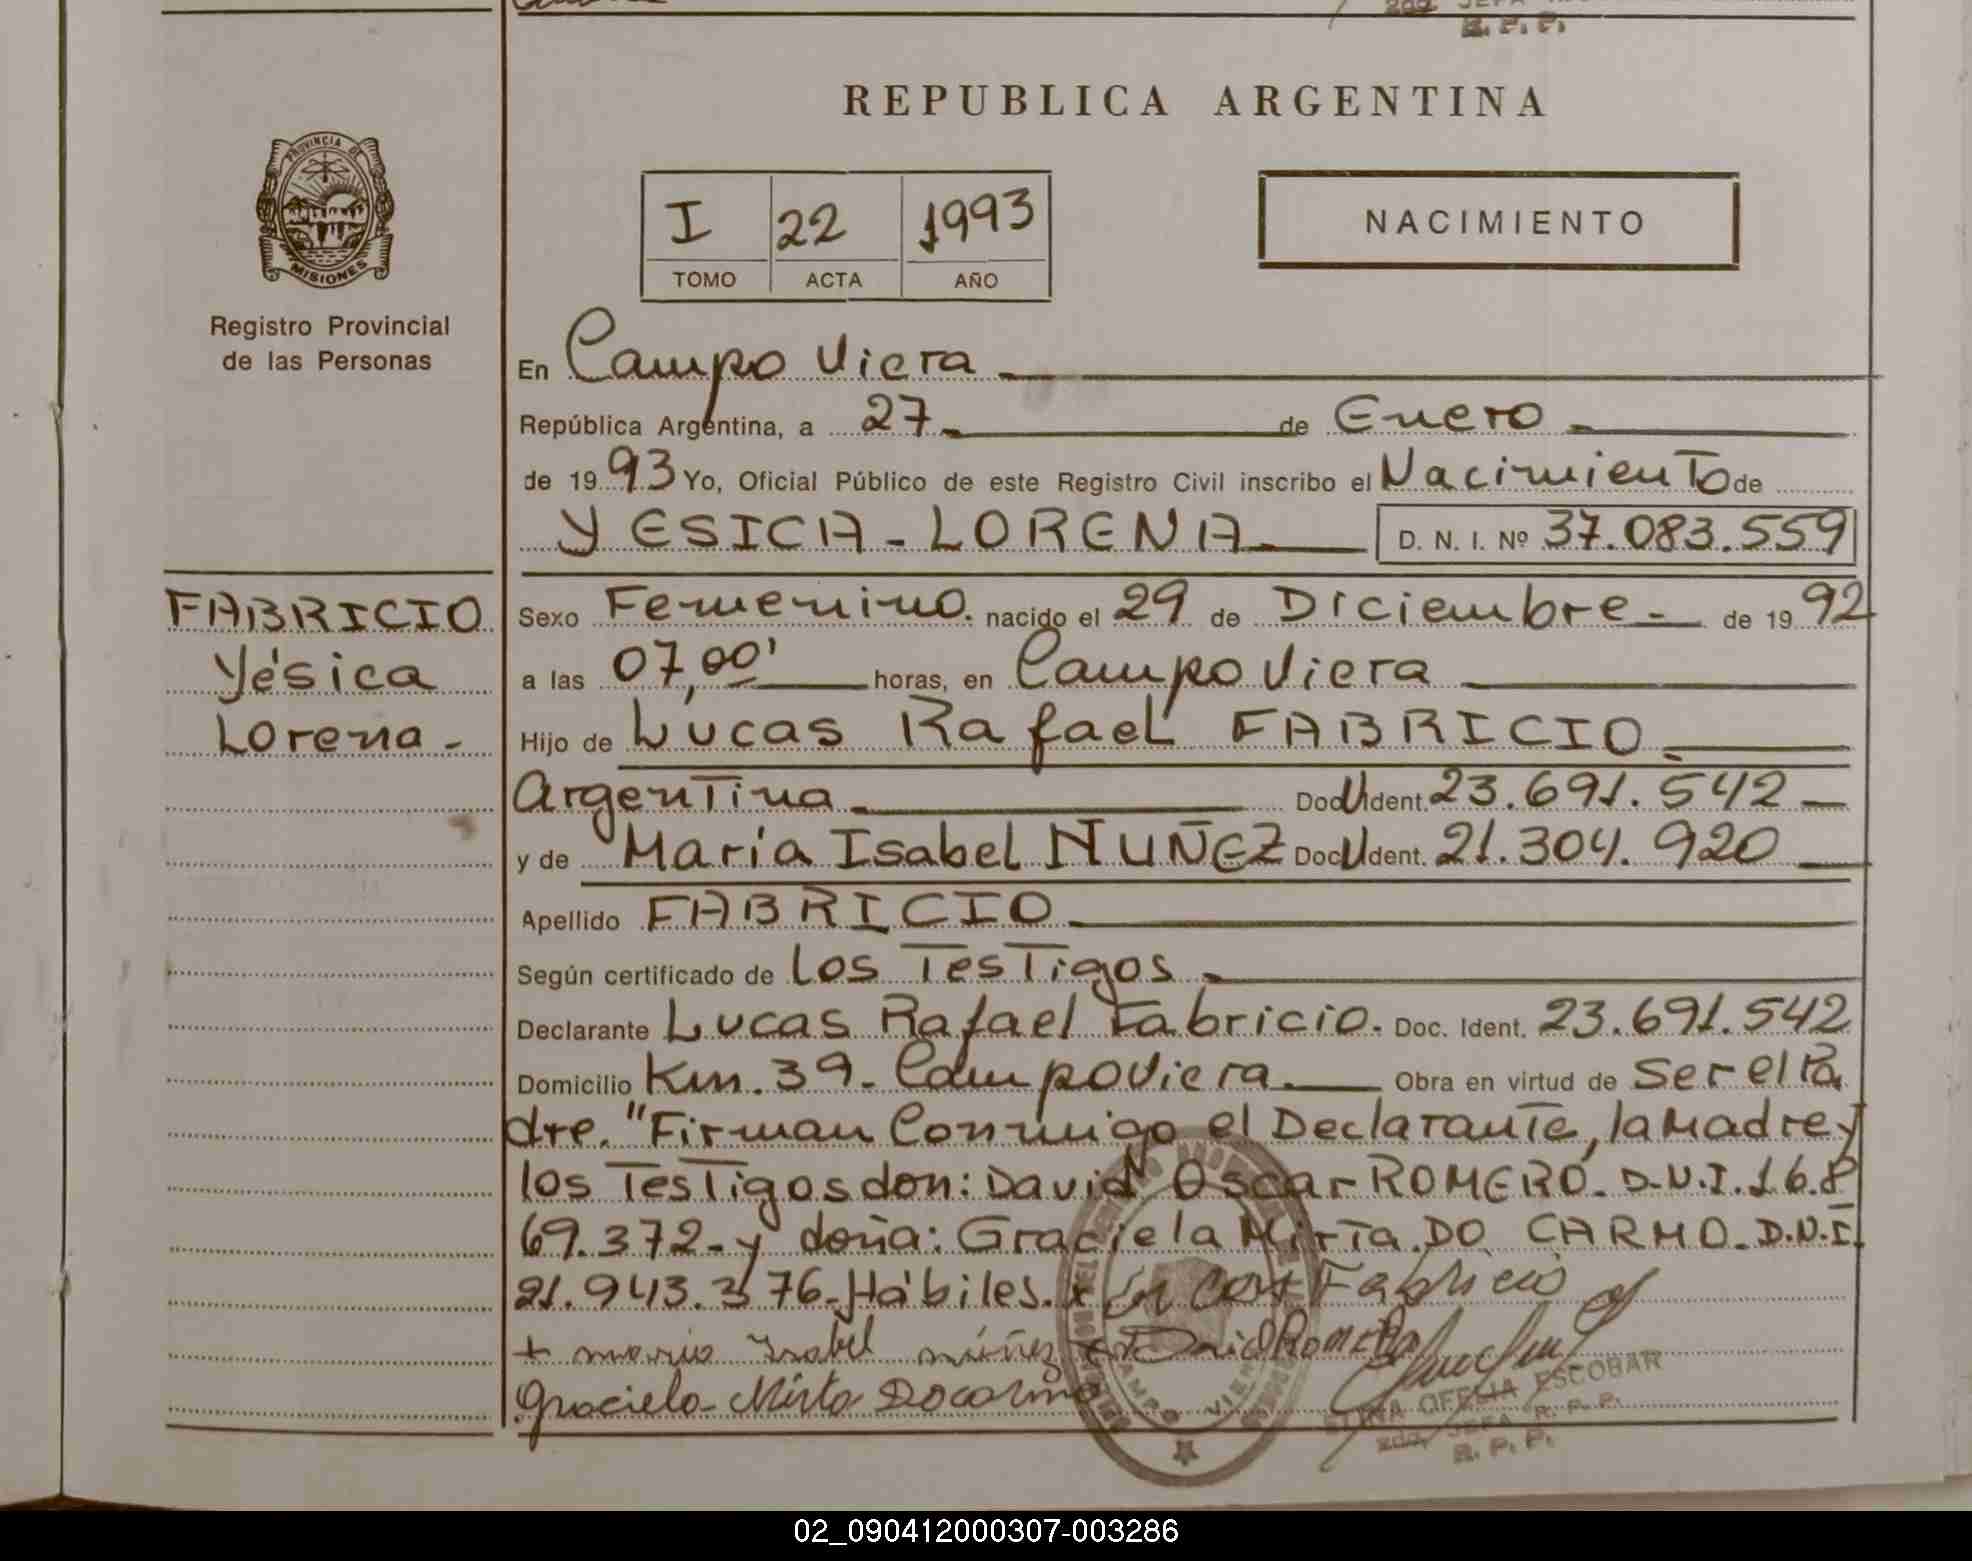 2da. JEFA
R. P. P.
REPUBLICA ARGENTINA
PROVINCIA DE
MISIONES
Registro Provincial
de las Personas
I 22 1993
TOMO ACTA AÑO
NACIMIENTO
En Campo Viera
República Argentina, a 27 de Enero
de 1993 Yo, Oficial Público de este Registro Civil inscribo el Nacimiento de
YESICA - LORENA D. N. I. Nº 37.083.559
FABRICIO
Yésica
Lorena -
Sexo Femenino. nacido el 29 de Diciembre - de 1992
a las 07,00' horas, en Campo Viera
Hijo de Lucas Rafael FABRICIO
Argentina Doc U Ident. 23.691.542
y de María Isabel NUÑEZ Doc U Ident. 21.304.920
Apellido FABRICIO
Según certificado de Los Testigos
Declarante Lucas Rafael Fabricio. Doc. Ident. 23.691.542
Domicilio Km. 39 - Campo Viera. Obra en virtud de Ser el Pa
dre. "Firman Conmigo el Declarante, la Madre y
los Testigos don: David Oscar ROMERO. D.N.I. 16.8
69.372 - y doña: Graciela Mirta DO CARMO. D.N.I
21.943.376 - Hábiles. x Fabricio
+ maria Isabel núñez x David Romero
Graciela Mirta Docarmo
OFELIA ESCOBAR
2da. JEFA R. P. P.
R. P. P.
CAMPO VIERA
02_090412000307-003286